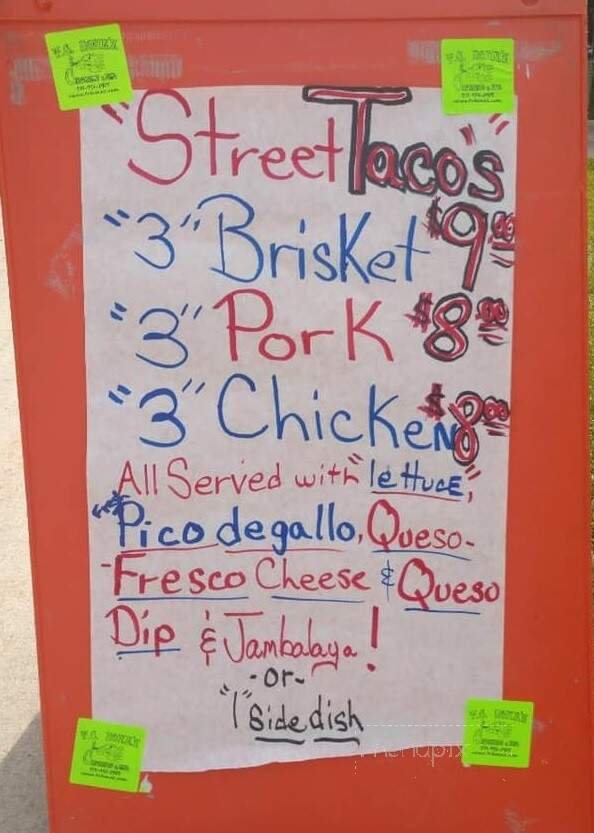 "Street Taco's"
"3" Brisket $9.00
"3" Pork $8.00
"3" Chicken $8.00
All Served with "lettuce",
"Pico degallo, Queso-
-Fresco Cheese & Queso
Dip & Jambalaya!
-or-
"1" Side dish
menupix